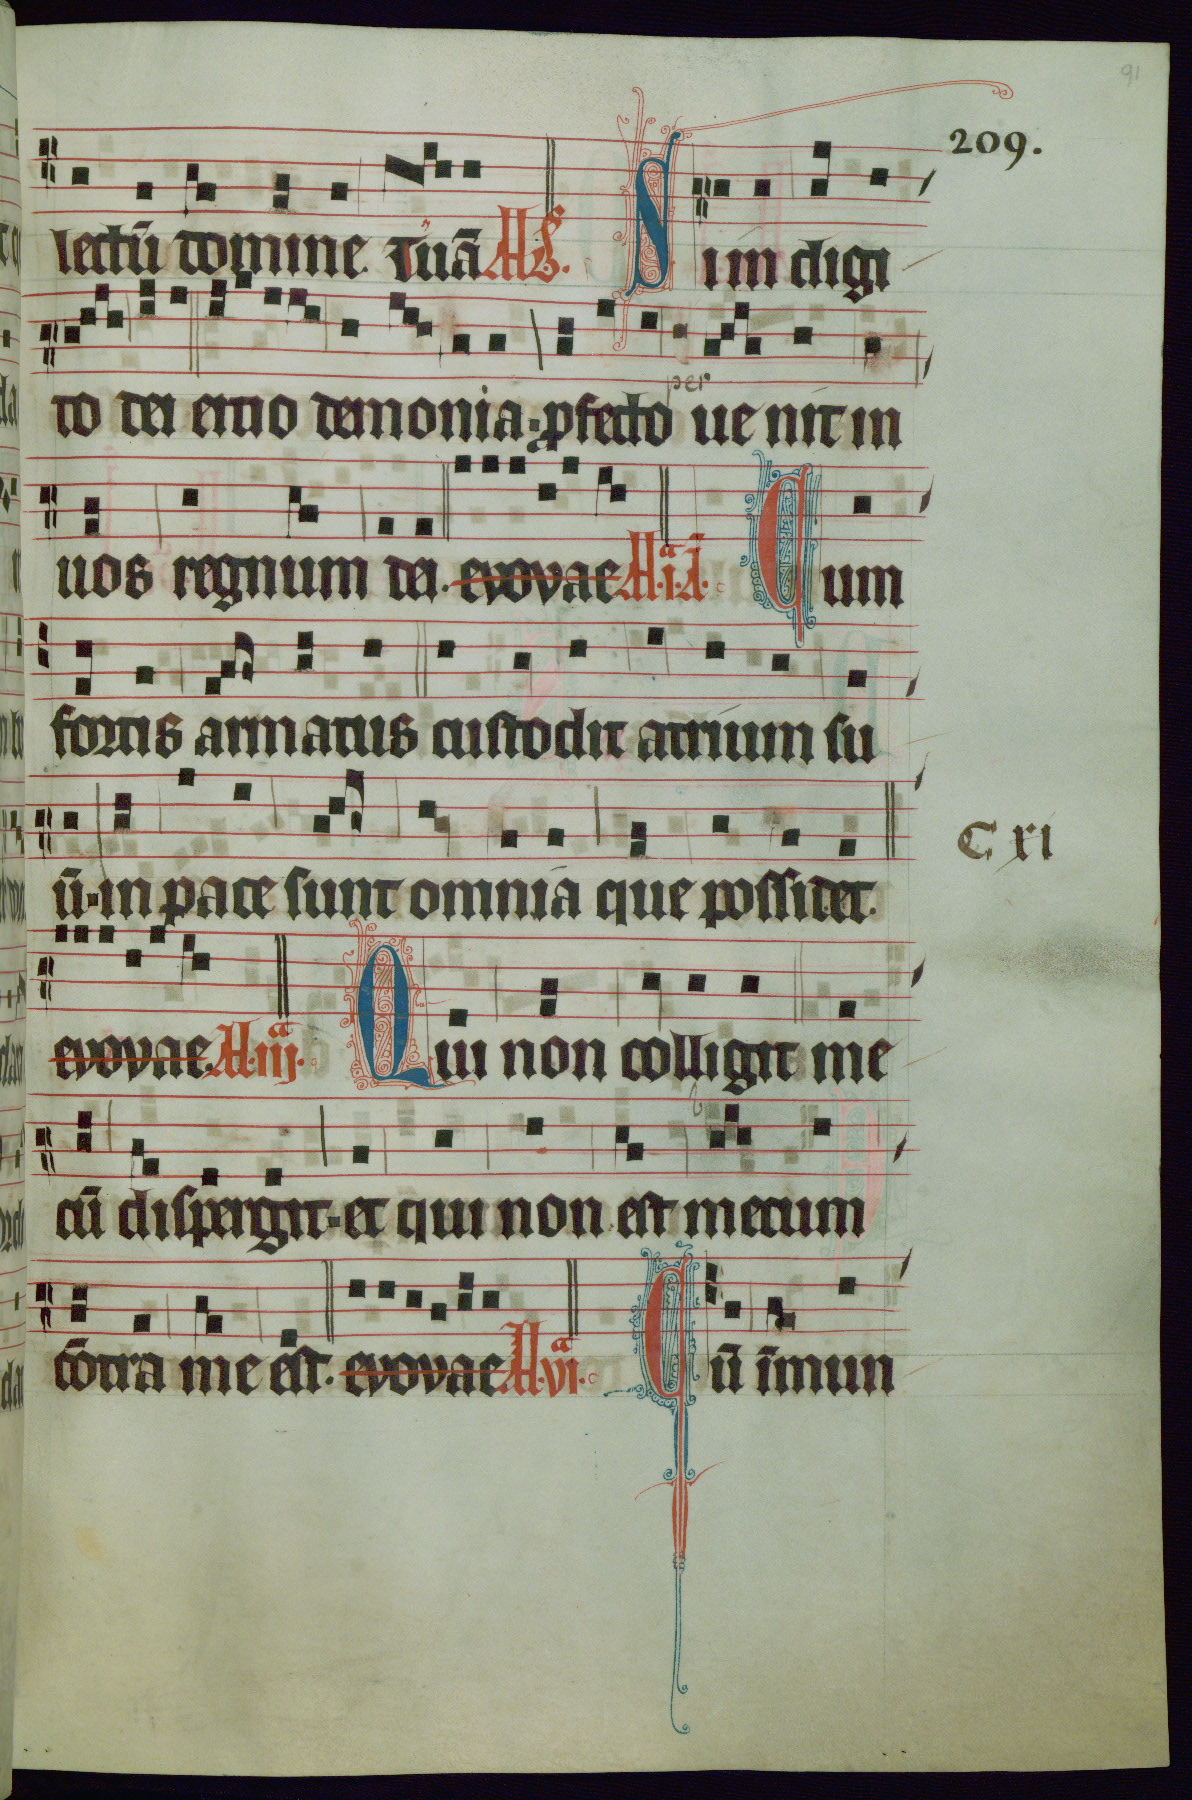 91
209.
lectū domine tuā A B. Si in digi
to dei eitio demonia. ꝑfecto ue nit in
per
uos regnum dei. evovae A. i. A. Cum
fortis armatus custodit atrium su
ū. in pace sunt omnia que possidet.
C xi
evovae. A. iij. Qui non colligit me
cū dispergit. et qui non est mecum
cōtra me est. evovae A. vi. Cū īmun